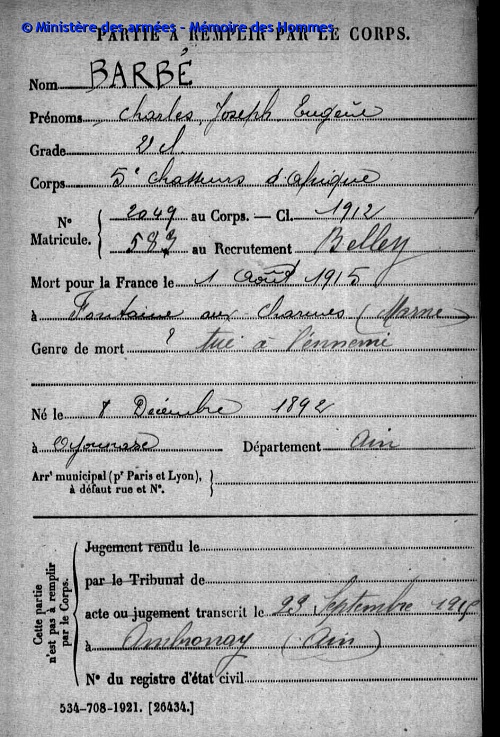 © Ministère des armées - Mémoire des Hommes
PARTIE À REMPLIR PAR LE CORPS.
Nom BARBÉ
Prénoms Charles Joseph Eugène
Grade 2e cl
Corps 5e Chasseurs d'Afrique
N° Matricule. { 2049 au Corps. — Cl. 1912
587 au Recrutement Belley
Mort pour la France le 1 Août 1915
à Fontaine aux Charmes (Marne)
Genre de mort ? tué à l'ennemi
Né le 8 Décembre 1892
à Oyonnax Département Ain
Arrt municipal (pr Paris et Lyon), à défaut rue et N°. }
Cette partie n'est pas à remplir par le Corps.
Jugement rendu le
par le Tribunal de
acte ou jugement transcrit le 29 Septembre
à Ambronay (Ain)
N° du registre d'état civil
534-708-1921. [26434.]